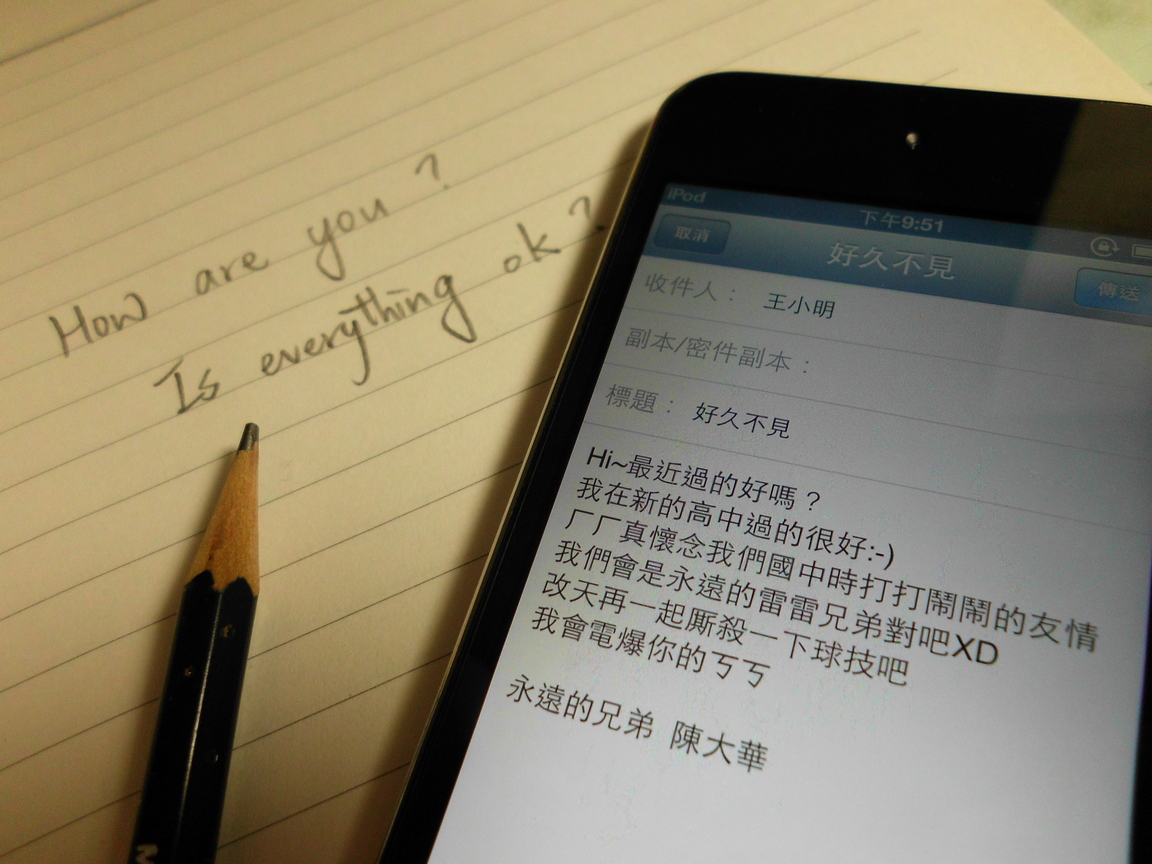 How are you?
Is everything ok?
iPod
下午9:51
取消
好久不見
傳送
收件人：王小明
副本/密件副本：
標題：好久不見
Hi~最近過的好嗎？
我在新的高中過的很好:-)
ㄏㄏ真懷念我們國中時打打鬧鬧的友情
我們會是永遠的雷雷兄弟對吧XD
改天再一起厮殺一下球技吧
我會電爆你的ㄎㄎ
永遠的兄弟 陳大華